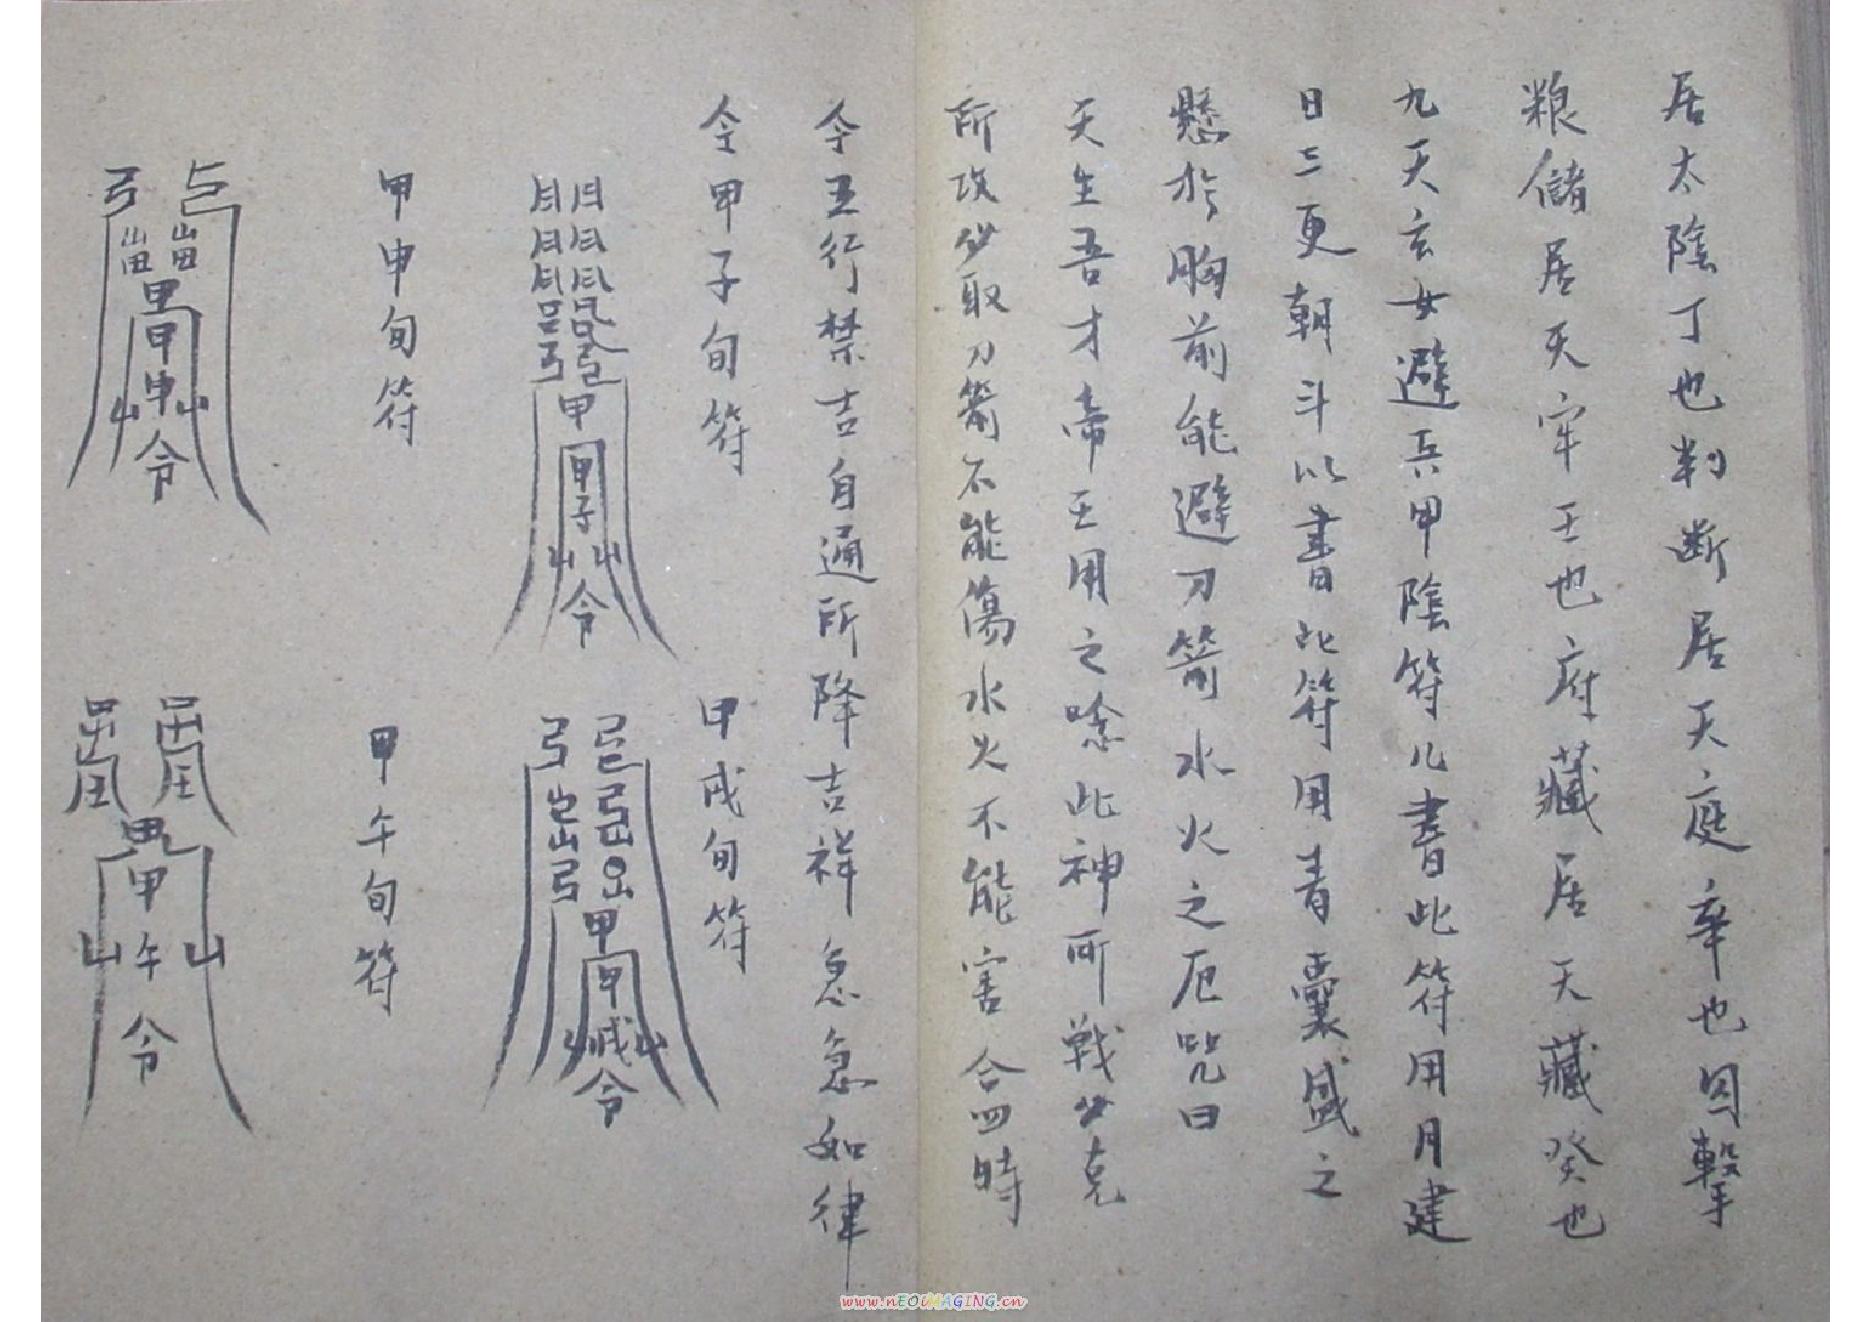 居太陰丁也判断居天庭辛也囚擊
粮儲居天牢壬也府藏居天藏癸也
九天玄女避兵甲陰符凡書此符用月建
日三更朝斗以書此符用青囊盛之
懸於胸前能避刀箭水火之厄咒曰
天生吾才帝王用之唸此神所戰必克
所攻必取刀箭不能傷水火不能害合四時
今五行禁吉自通所降吉祥急急如律
令甲子旬符
甲戌旬符
甲
甲子
令
甲
甲
令
甲申旬符
甲午旬符
甲申
令
甲午
令
www.nEOiMAGING.cn